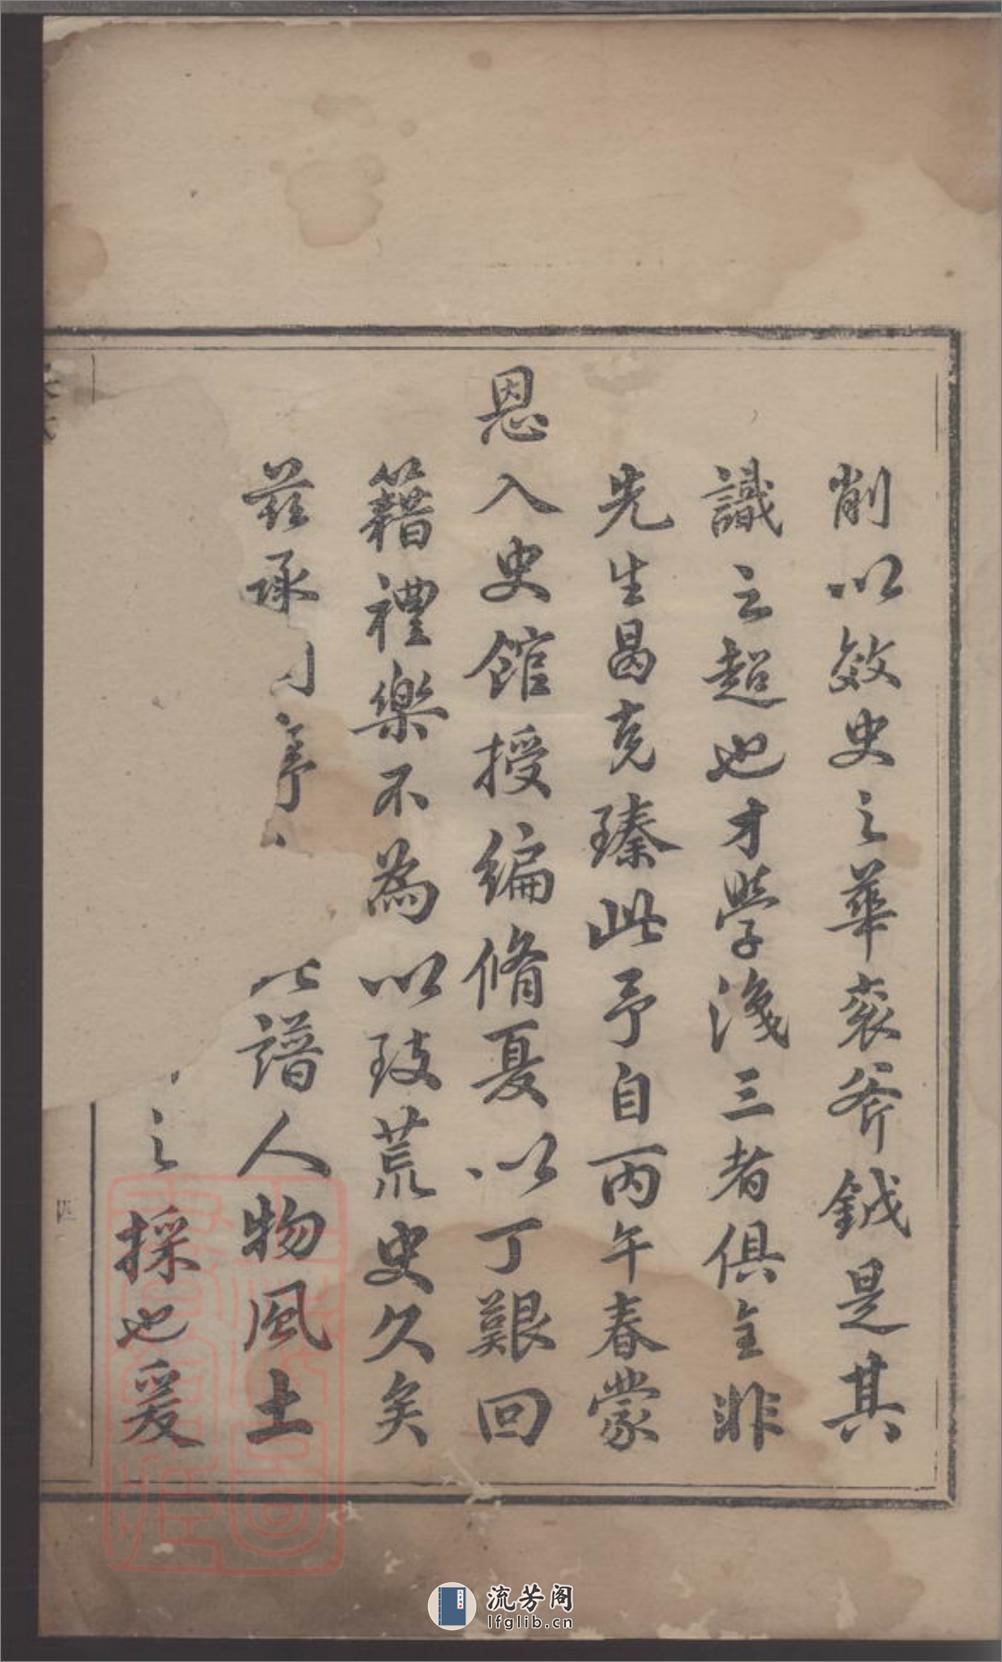 削以效史之華袞斧鉞是其
識之超也才學淺三者俱全非
先生曷克臻此予自丙午春蒙
恩入史館授編脩憂以丁艱回
籍禮樂不為以致荒史久矣
茲承 序 譜人物風土
之採也爰
流芳阁
lfglib.cn